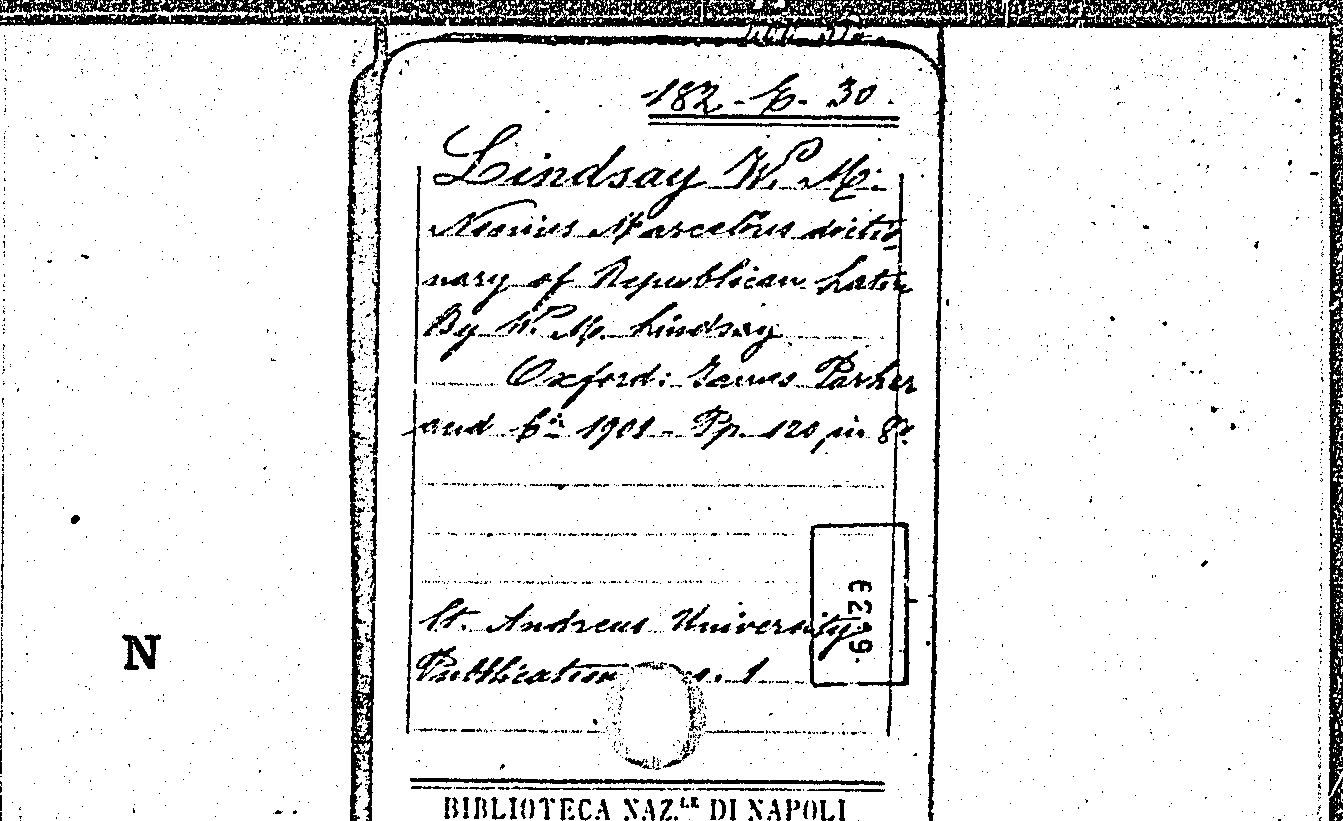 182. E. 30.
Lindsay W. M.
Nonius Marcellus dictio
nary of Republican Latin
By W. M. Lindsay
Oxford: James Parker
and C.º 1901 - Pp. 120 in 8º.
St. Andreus University
Publication 1
6229
N
BIBLIOTECA NAZ.LE DI NAPOLI